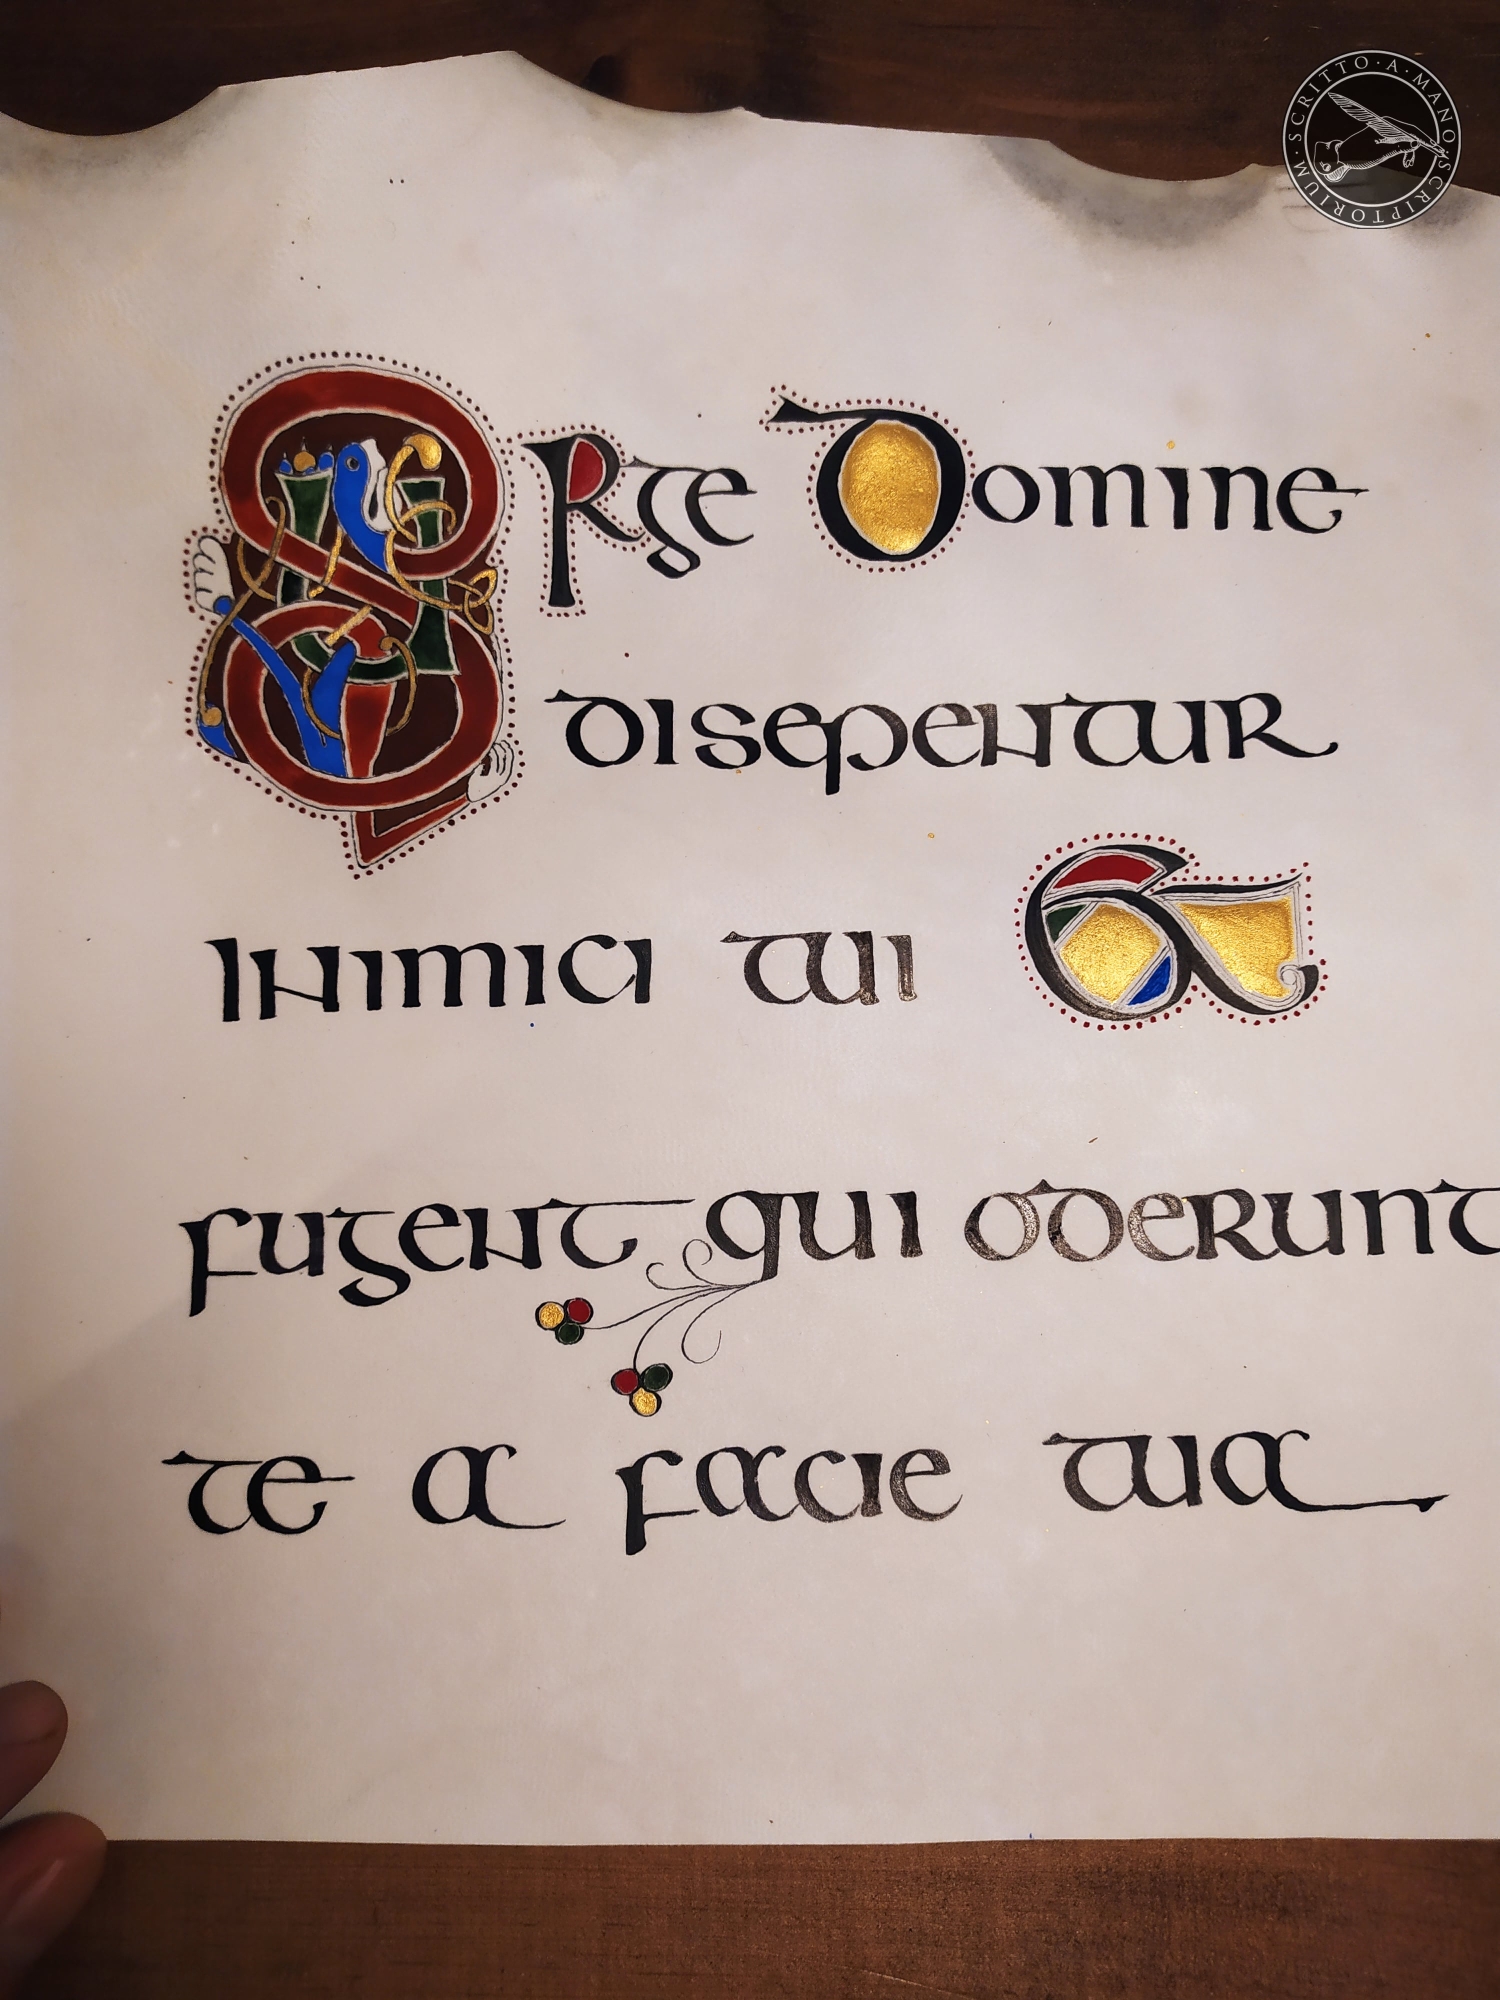 SCRITTO · A · MANO · SCRIPTORIUM ·
SURge Domine
disepentur
inimici tui Et
fugent qui oderunt
te a facie tua